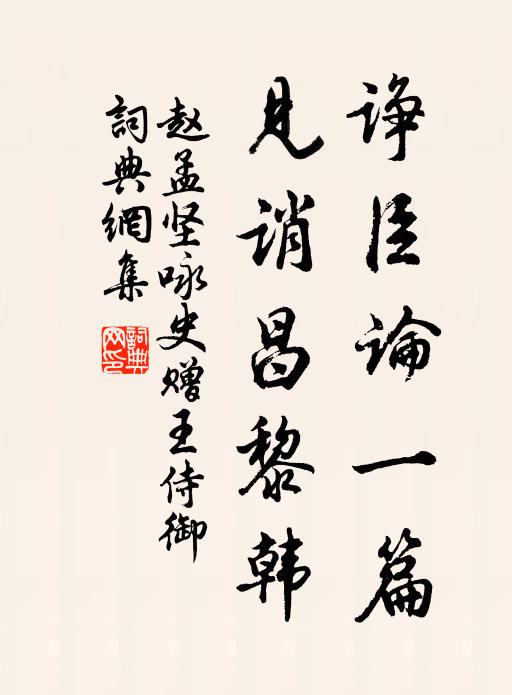 诤臣论一篇
见诮昌黎韩
赵孟坚咏史赠王侍御
詞典網集
詞典
网印